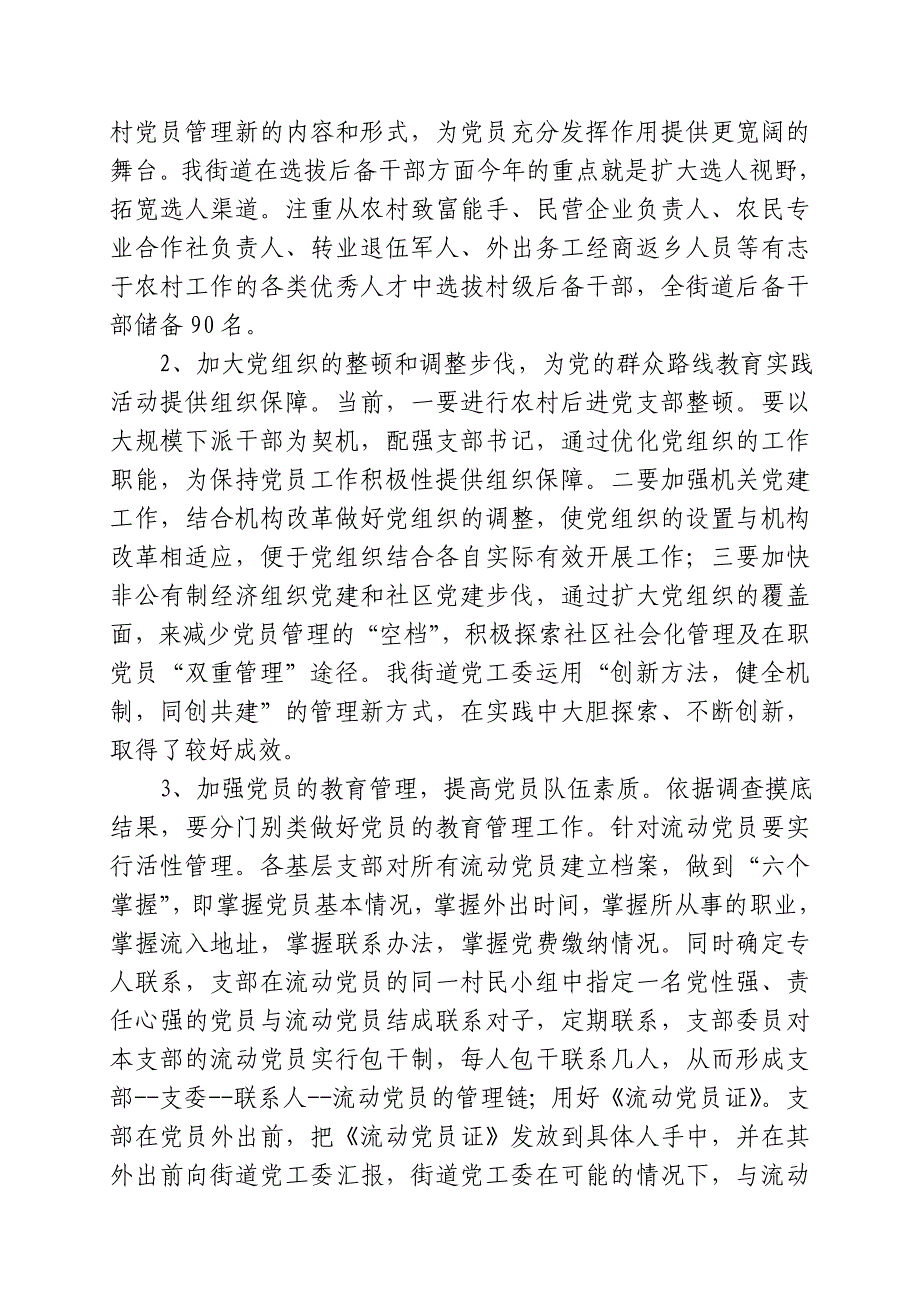 村党员管理新的内容和形式，为党员充分发挥作用提供更宽阔的
舞台。我街道在选拔后备干部方面今年的重点就是扩大选人视野，
拓宽选人渠道。注重从农村致富能手、民营企业负责人、农民专
业合作社负责人、转业退伍军人、外出务工经商返乡人员等有志
于农村工作的各类优秀人才中选拔村级后备干部，全街道后备干
部储备 90 名。
2、加大党组织的整顿和调整步伐，为党的群众路线教育实践
活动提供组织保障。当前，一要进行农村后进党支部整顿。要以
大规模下派干部为契机，配强支部书记，通过优化党组织的工作
职能，为保持党员工作积极性提供组织保障。二要加强机关党建
工作，结合机构改革做好党组织的调整，使党组织的设置与机构
改革相适应，便于党组织结合各自实际有效开展工作；三要加快
非公有制经济组织党建和社区党建步伐，通过扩大党组织的覆盖
面，来减少党员管理的“空档”，积极探索社区社会化管理及在职
党员“双重管理”途径。我街道党工委运用“创新方法，健全机
制，同创共建”的管理新方式，在实践中大胆探索、不断创新，
取得了较好成效。
3、加强党员的教育管理，提高党员队伍素质。依据调查摸底
结果，要分门别类做好党员的教育管理工作。针对流动党员要实
行活性管理。各基层支部对所有流动党员建立档案，做到“六个
掌握”，即掌握党员基本情况，掌握外出时间，掌握所从事的职业，
掌握流入地址，掌握联系办法，掌握党费缴纳情况。同时确定专
人联系，支部在流动党员的同一村民小组中指定一名党性强、责
任心强的党员与流动党员结成联系对子，定期联系，支部委员对
本支部的流动党员实行包干制，每人包干联系几人，从而形成支
部--支委--联系人--流动党员的管理链；用好《流动党员证》。支
部在党员外出前，把《流动党员证》发放到具体人手中，并在其
外出前向街道党工委汇报，街道党工委在可能的情况下，与流动